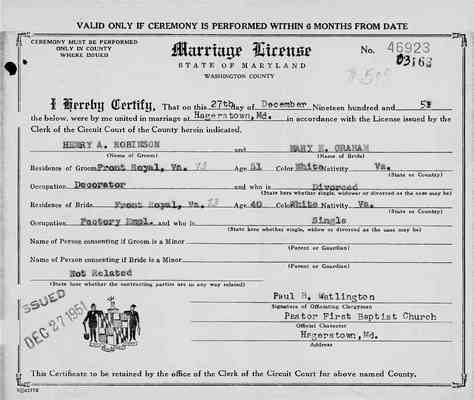 VALID ONLY IF CEREMONY IS PERFORMED WITHIN 6 MONTHS FROM DATE
CEREMONY MUST BE PERFORMED
ONLY IN COUNTY
WHERE ISSUED
Marriage License
STATE OF MARYLAND
WASHINGTON COUNTY
No. 46923
03163
I Hereby Certify, That on this 27th day of December Nineteen hundred and 51
the below, were by me united in marriage at Hagerstown, Md. in accordance with the License issued by the
Clerk of the Circuit Court of the County herein indicated.
HENRY A. ROBINSON and MARY E. GRAHAM
(Name of Groom) (Name of Bride)
Residence of Groom Front Royal, Va. Age 51 Color White Nativity Va.
(State or County)
Occupation Decorator and who is Divorced
(State here whether single, widower or divorced as the case may be)
Residence of Bride Front Royal, Va. Age 40 Color White Nativity Va.
(State or County)
Occupation Factory Empl. and who is Single
(State here whether single, widow or divorced as the case may be)
Name of Person consenting if Groom is a Minor
(Parent or Guardian)
Name of Person consenting if Bride is a Minor
(Parent or Guardian)
Not Related
(State here whether the contracting parties are in any way related)
ISSUED
DEC 27 1951
Paul B. Watlington
Signature of Officiating Clergyman
Pastor First Baptist Church
Official Character
Hagerstown, Md.
Address
This Certificate to be retained by the office of the Clerk of the Circuit Court for above named County.